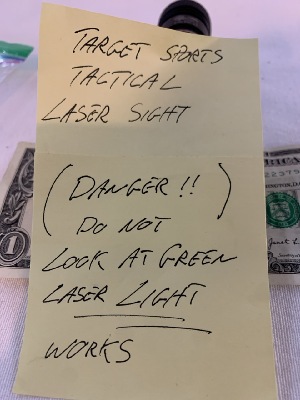 TARGET SPORTS
TACTICAL
LASER SIGHT
(DANGER!!)
DO NOT
LOOK AT GREEN
LASER LIGHT
WORKS
1